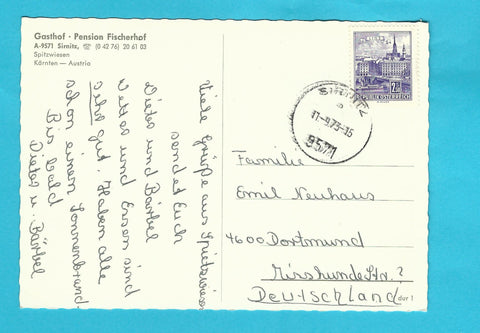 Gasthof · Pension Fischerhof
A-9571 Sirnitz, ☎ (0 42 76) 20 61 03
Spitzwiesen
Kärnten — Austria
Viele Grüße aus Spitzwiesen
sendet Euch
Dieter und Bärbel
Wetter und Essen sind
sehr gut. Haben alle
schon einen Sonnenbrand.
Bis bald
Dieter u. Bärbel
REPUBLIK ÖSTERREICH
SIRNITZ
11-9.73-16
9571
Familie
Emil Neuhaus
4600 Dortmund
Deutschland